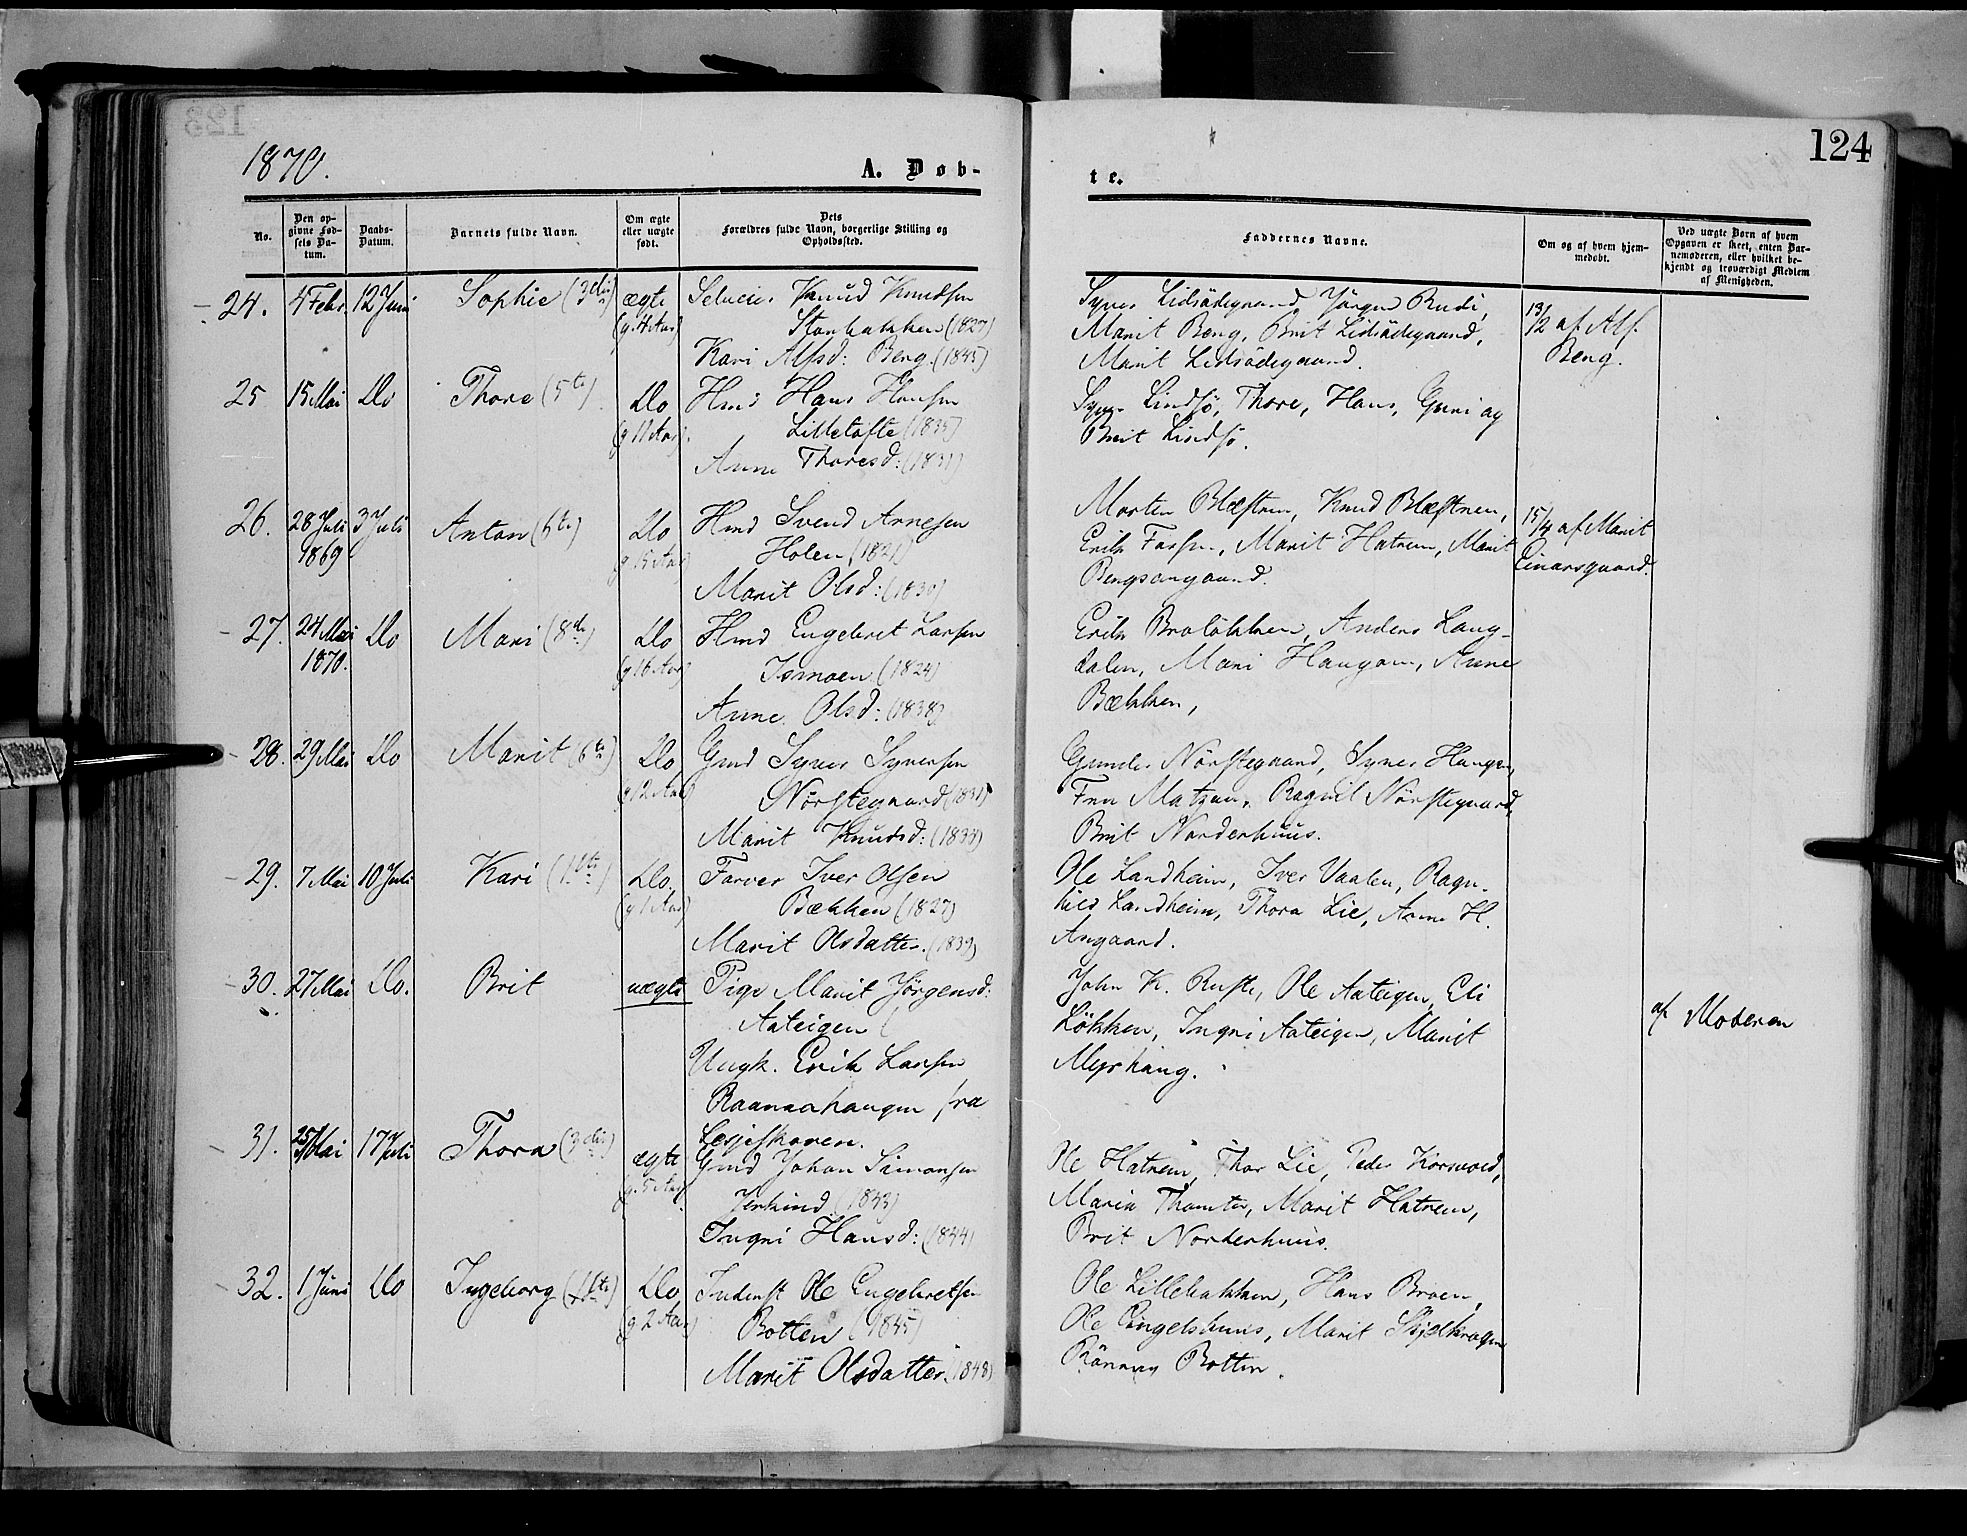 124
1870.
A. Døb-
te.
No.
Den op-
givne Fød-
sels Da-
tum.
Daabs-
Datum.
Barnets fulde Navn.
Om ægte
eller uægte
født.
Dets
Forældres fulde Navn, borgerlige Stilling og
Opholdssted.
Faddernes Navne.
Om og af hvem hjem-
medøbt.
Ved uægte Børn af hvem
Opgaven er skeet, enten Bar-
nemoderen, eller hvilket be-
kjendt og troværdigt Medlem
af Menigheden.
24. 4 Febr. 12 Juni Sophie (3die) ægte Knud Knudsen
(g. 4 Aar) (1827)
Kari Alfsd: Berg. (1845)
Syver Lidsödegaard, Jörgen Rudi,
Marit Berg, Brit Lidsödegaard,
Marit Lidsödegaard.
13/2 af Alf
Berg.
25 15 Mai Do Thore (5te) Do Hmd Hans Hansen
(g 11 Aar). Lilletofte (1835)
Anne Thoresd: (1831)
Lindsö, Thore, Hans, Guri og
Brit Lindsö.
26. 28 Juli 3 Juli Anton (6te) Do Hmd Svend Arnesen
1869 g. 15 Aar) Holen (1821)
Marit Olsd: (1830)
Morten Blæstren, Knud Blæstren,
Erik, Marit Hatrem, Marit
15/4 af Marit
Einarsgaard.
27. 24 Mai Do Mari (8de) Do Hmd Engebret Larsen
1870. (g 16 Aar) Ismoen (1824)
Anne Olsd: (1838)
Erik Bralökken, Anders Lang-
dalen, Mari Haugom, Anne
Bækken,
28. 29 Mai Do Marit (6te) Do Gmd Syver Syversen
g 12 Aar) Nörstegaard (1831)
Marit Knudsd: (1833)
Gunder Nörstegaard, Syver Haugen,
Fru Matzau, Ragnil Nörstegaard,
Brit Norderhuus.
29. 7 Mai 10 Juli Kari (1ste) Do. Farver Iver Olsen
(g 1 Aar) Bækken (1827)
Marit Olsdatter. (1839)
Ole Landheim, Iver Vaalen, Ragn-
hild Landheim, Thora Lie, Anne H.
Angaard.
30. 27 Mai Do. Brit uægte Pige Marit Jörgensd:
Aateigen (
Ungk. Erik Larsen
Raanaahaugen fra
Lesjeskoven.
John K. Ruste, Ole Aateigen, Eli
Lökken, Ingri Aateigen, Marit
Myrhaug.
af Moderen
31. 25 Mai 17 Juli Thora (3die) ægte Gmd Johan Simonsen
(g. 5 Aar) Jerkind (1843)
Ingri Hansd: (1844)
Ole Hatrem, Thor Lie, Peder Korsvold,
Maria, Marit Hatrem,
Brit Norderhuus.
32. 1 Juni Do Ingeborg (1ste) Do Inderst Ole Engebretsen
(g 2 Aar) Botten (1845)
Marit Olsdatter. (1848)
Ole Lillebakken, Hans Broen,
Ole Engelshuus, Marit Skjelkragen
Rönnaug Botten.